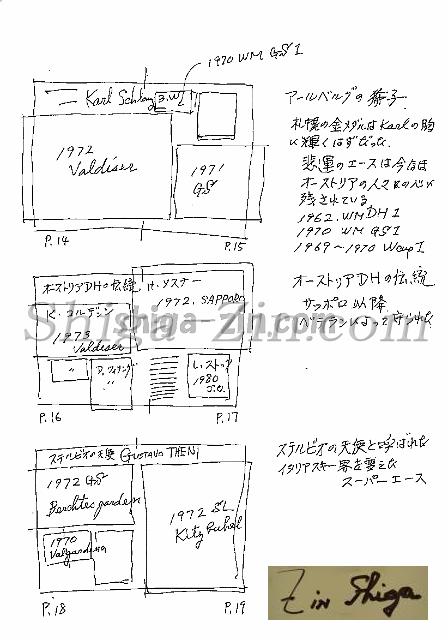 1970 WM GS 1
Karl Schranz 3.WC
1972
Valdiser
1971
GS
P.14
P.15
アールベルグの獅子
札幌の金メダルはKarlの胸
に輝くはずだった.
悲運のエースは今なお
オーストリアの人々の心に
残されている
1962. WM DH 1
1970 WM GS 1
1969〜1970 Wcup 1
オーストリアDHの伝統
K.コルデン
1973
Valdiser
1972. SAPPORO
〃
〃
1980
P.16
P.17
オーストリアDHの伝統
サッポロ以降
ベテランによって守られた
ステルビオの天使 GUSTAVO THENI
1972 GS
Berchtesgarden
1970
Valgardena
1972 SL
Kitzbuhel
P.18
P.19
ステルビオの天使と呼ばれた
イタリアスキー界を変えた
スーパーエース
Shiga-Zin.com
Z in Shiga